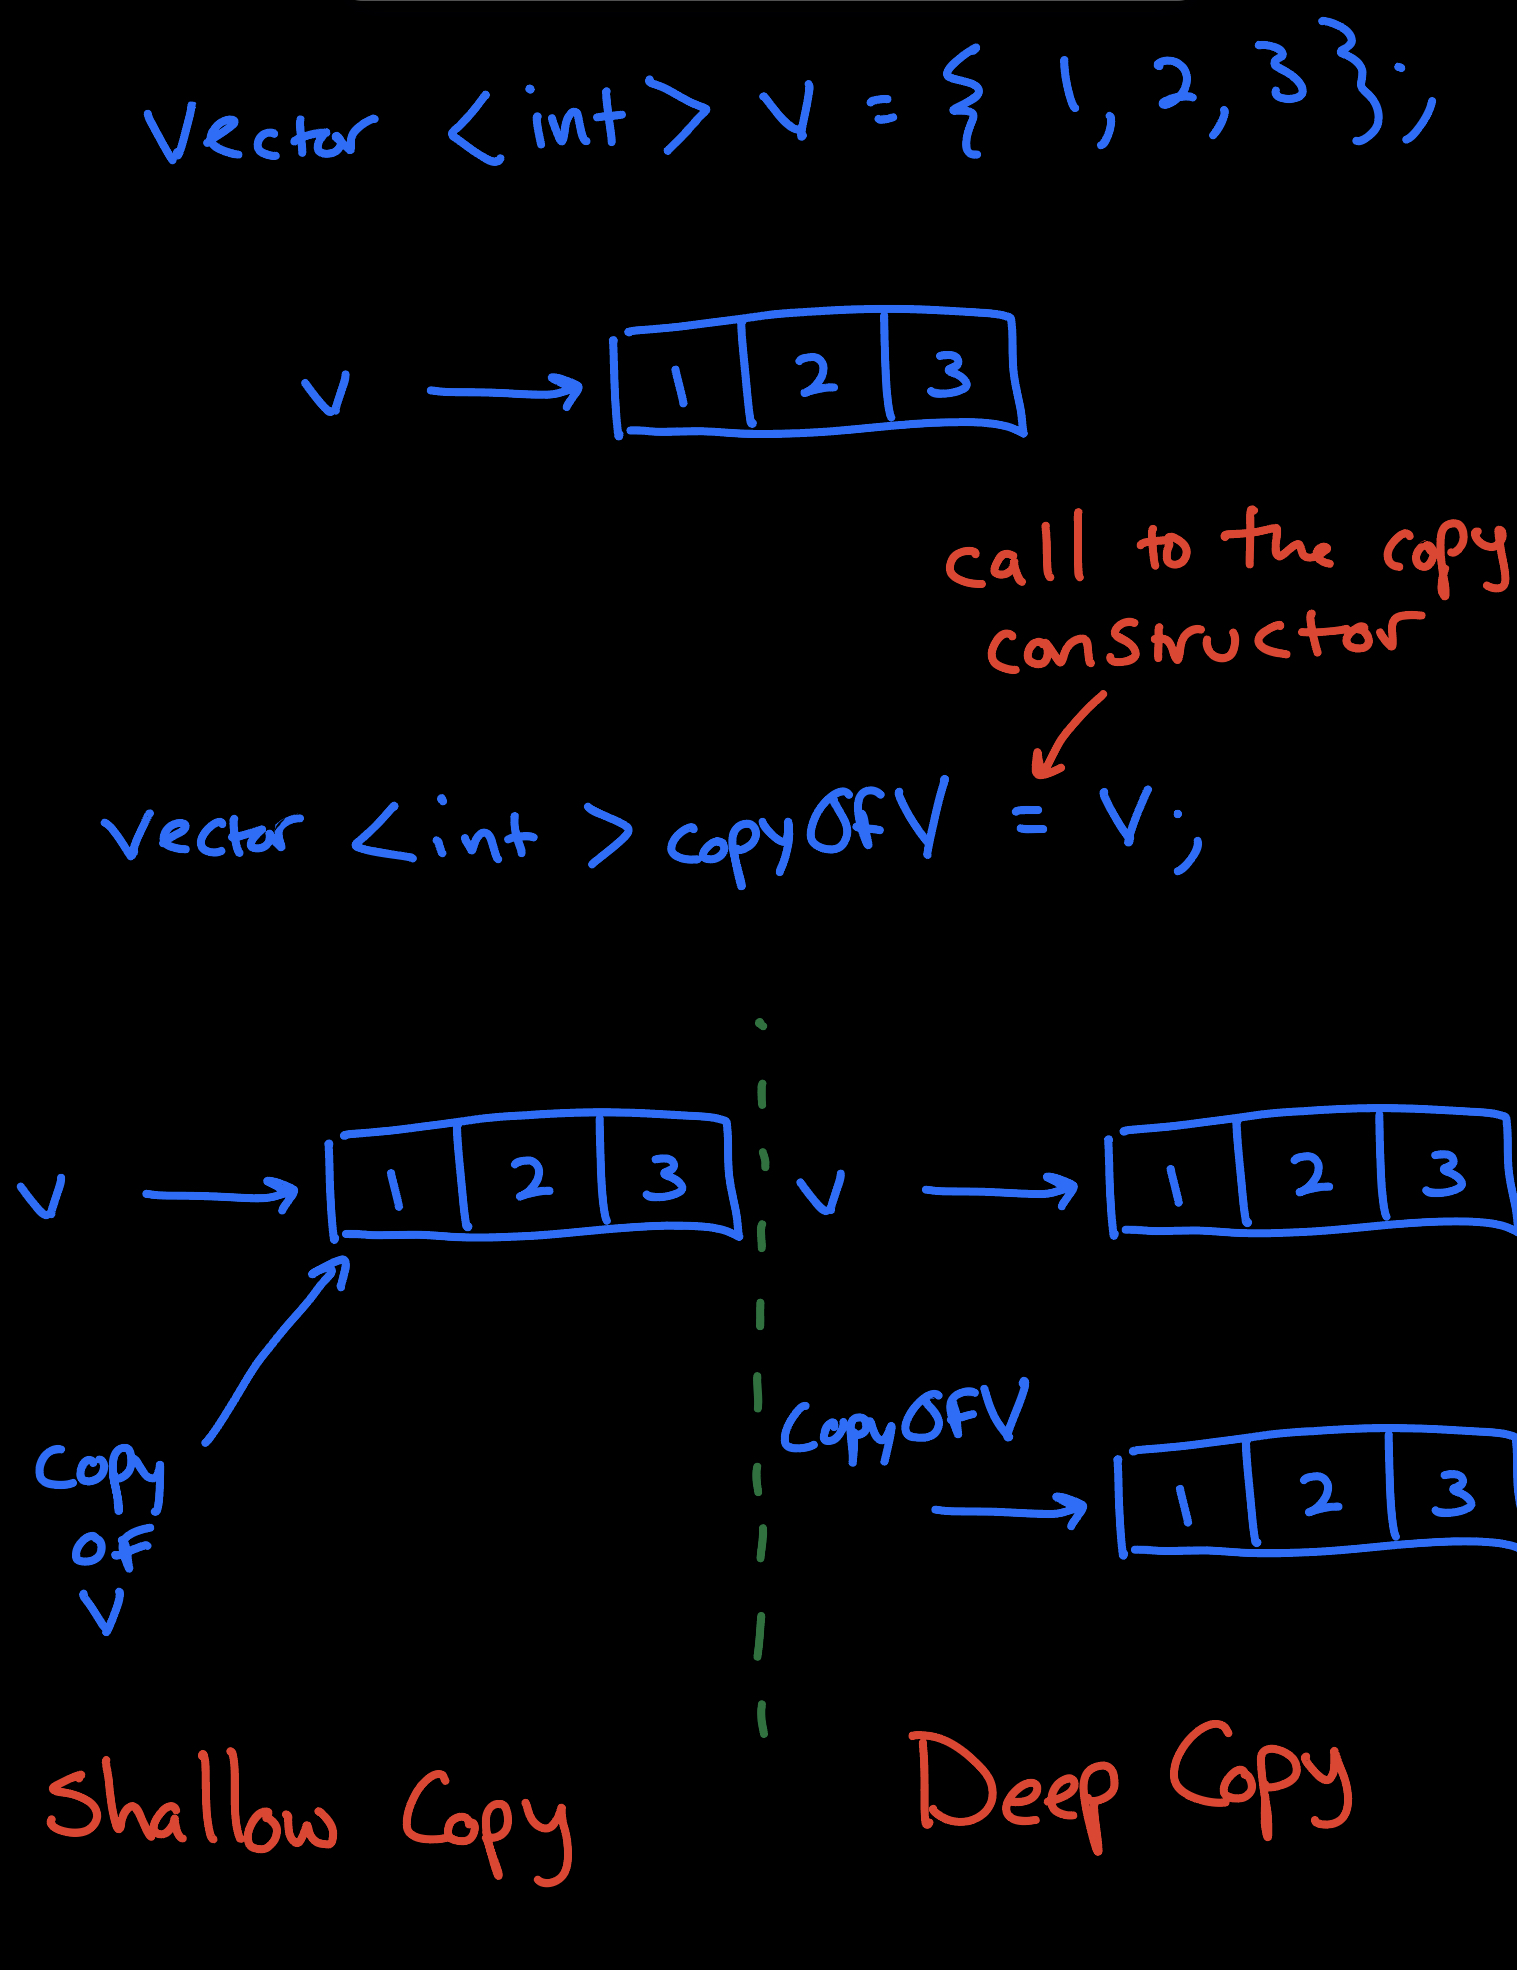 Vector <int> v = { 1, 2, 3 };
v → 1 2 3
call to the copy
constructor
vector <int> copyOfV = v;
v → 1 2 3
copy
of
v
Shallow Copy
v → 1 2 3
CopyOfV
→ 1 2 3
Deep Copy